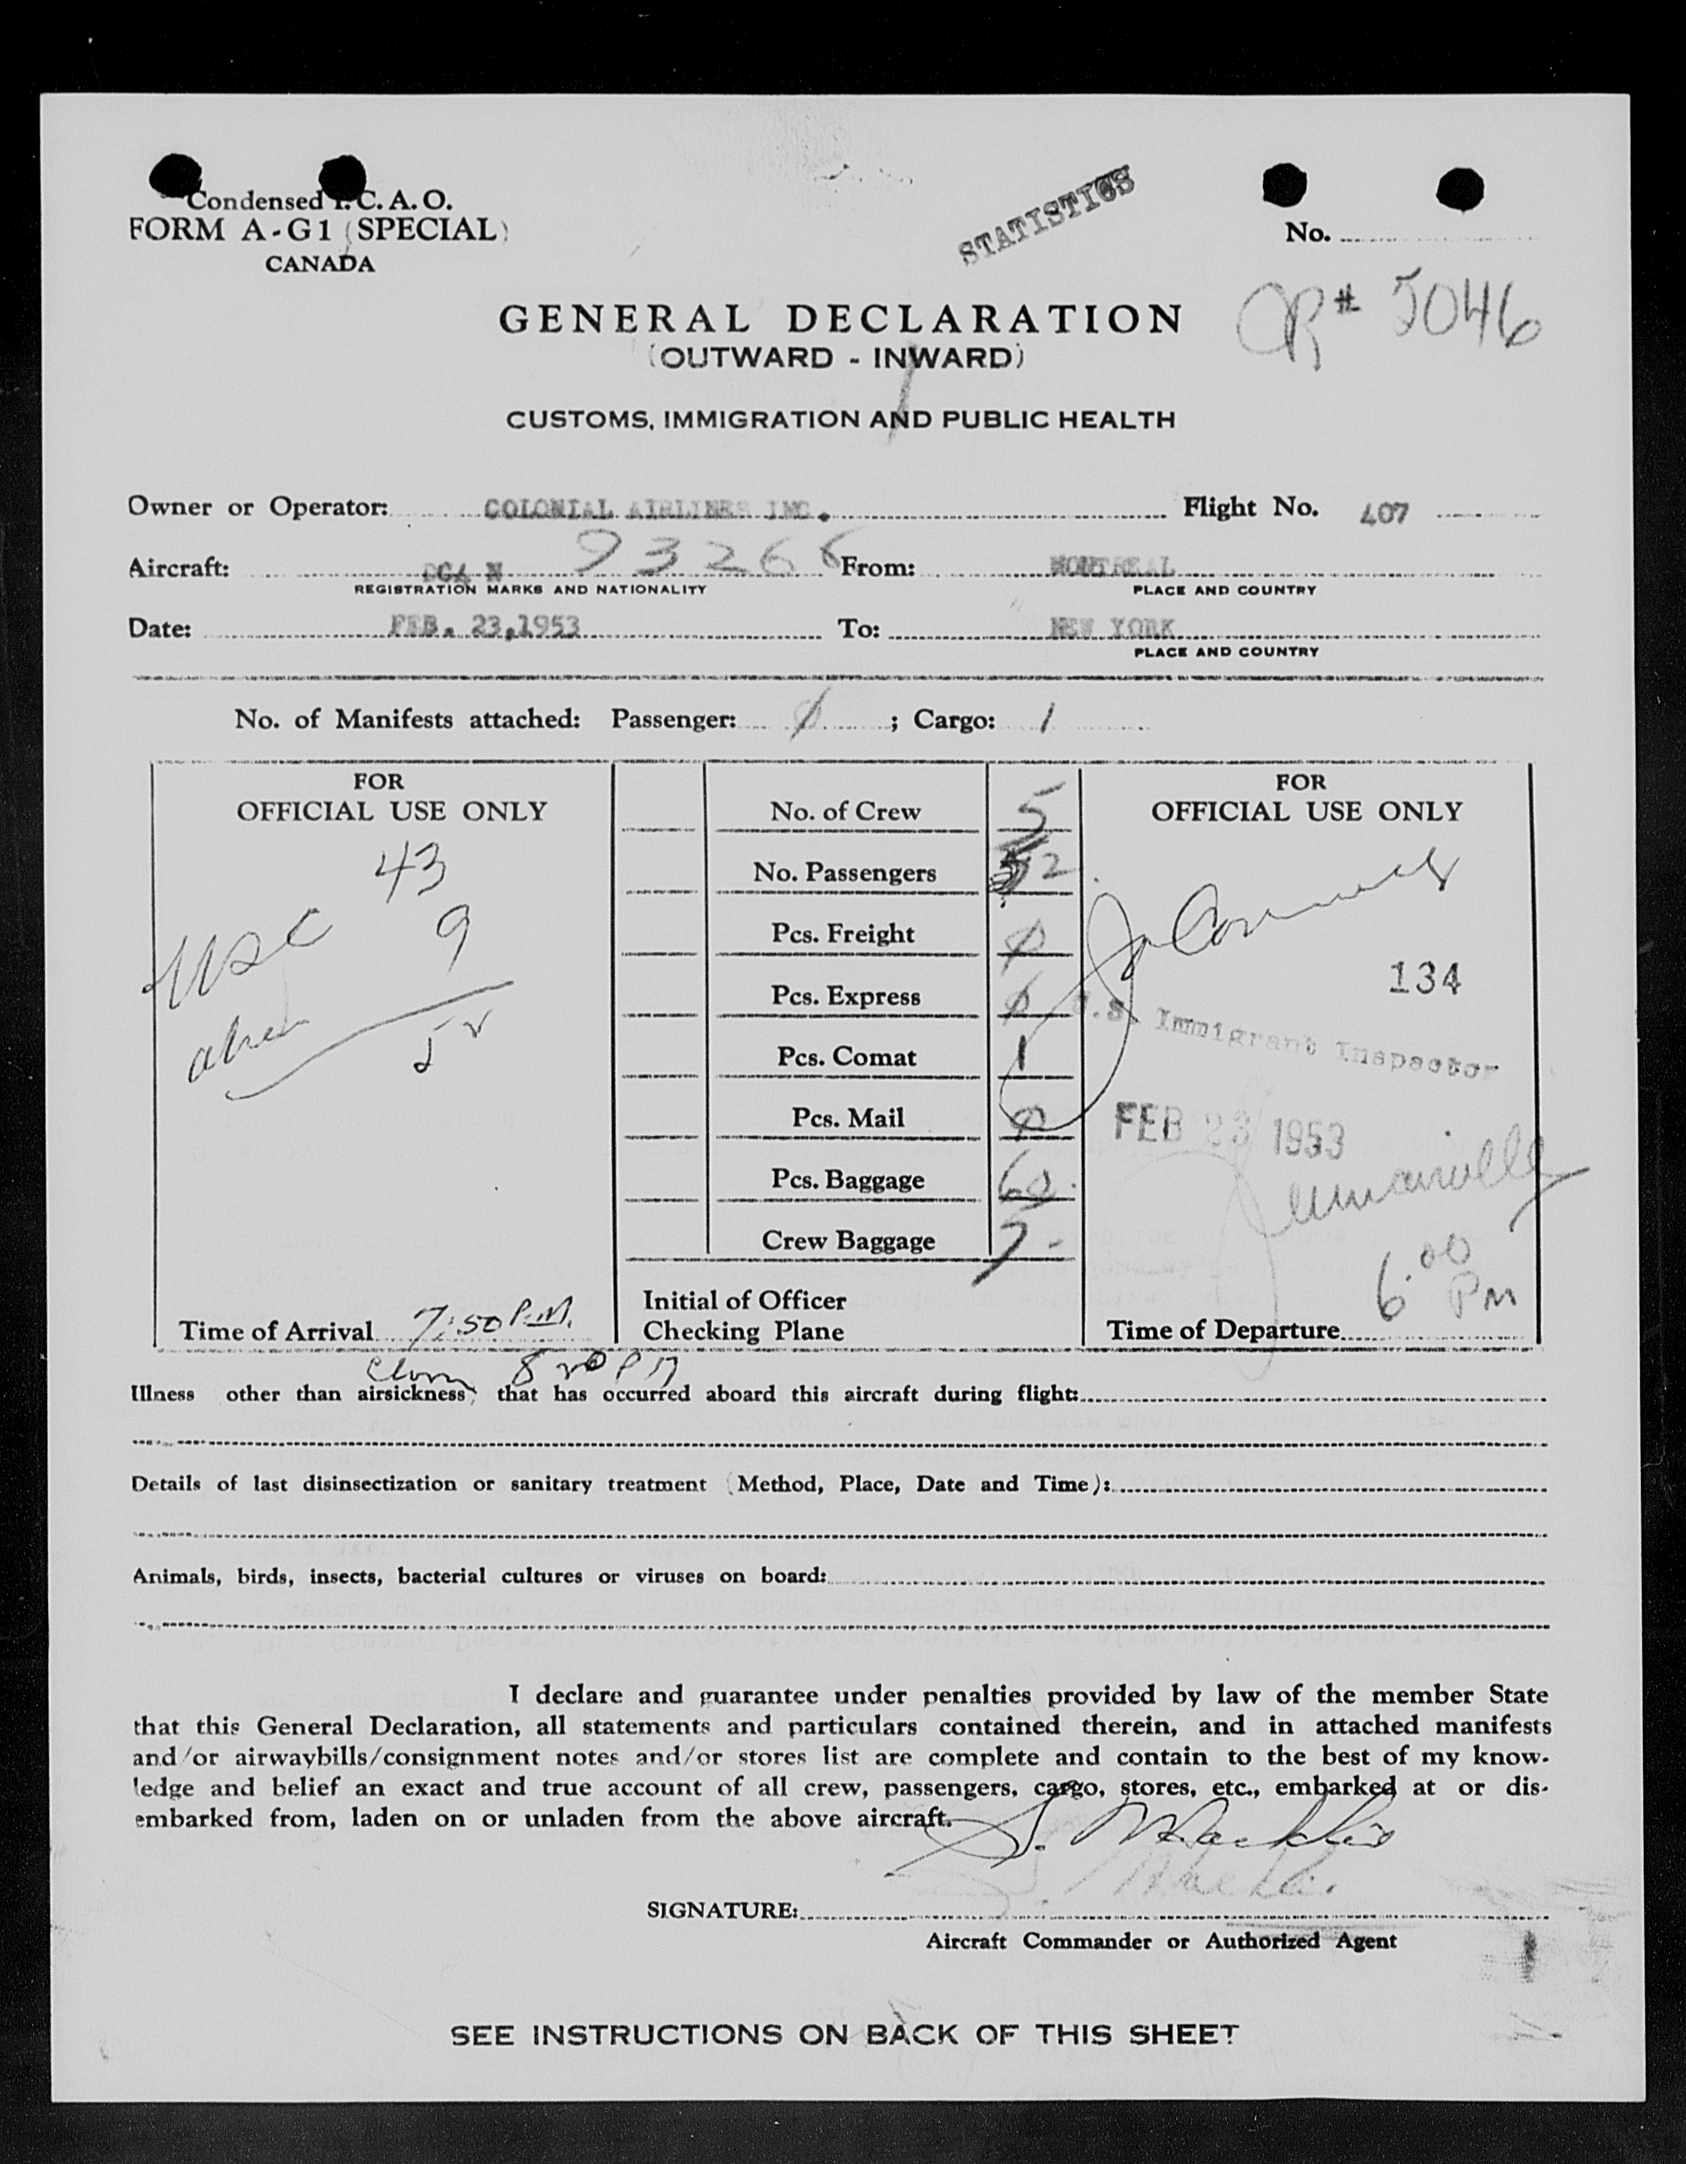 Condensed I. C. A. O.
FORM A-G1 (SPECIAL)
CANADA
STATISTICS
No.
CR# 5046
GENERAL DECLARATION
(OUTWARD - INWARD)
CUSTOMS, IMMIGRATION AND PUBLIC HEALTH
Owner or Operator: COLONIAL AIRLINES INC. Flight No. 407
Aircraft: DC4 N 93266 From: MONTREAL
REGISTRATION MARKS AND NATIONALITY PLACE AND COUNTRY
Date: FEB. 23,1953 To: NEW YORK
PLACE AND COUNTRY
No. of Manifests attached: Passenger: 0 ; Cargo: 1
FOR
OFFICIAL USE ONLY
43
USC 9
alien
52
Time of Arrival 7:50 P.M.
No. of Crew 5
No. Passengers 52
Pcs. Freight 0
Pcs. Express 0
Pcs. Comat 1
Pcs. Mail 0
Pcs. Baggage 60
Crew Baggage 7
Initial of Officer
Checking Plane
FOR
OFFICIAL USE ONLY
134
U.S. Immigrant Inspector
FEB 23 1953
6:00
PM
Time of Departure
8 20 PM
Illness other than airsickness, that has occurred aboard this aircraft during flight:
Details of last disinsectization or sanitary treatment (Method, Place, Date and Time):
Animals, birds, insects, bacterial cultures or viruses on board:
I declare and guarantee under penalties provided by law of the member State
that this General Declaration, all statements and particulars contained therein, and in attached manifests
and/or airwaybills/consignment notes and/or stores list are complete and contain to the best of my know-
ledge and belief an exact and true account of all crew, passengers, cargo, stores, etc., embarked at or dis-
embarked from, laden on or unladen from the above aircraft.
SIGNATURE:
Aircraft Commander or Authorized Agent
SEE INSTRUCTIONS ON BACK OF THIS SHEET